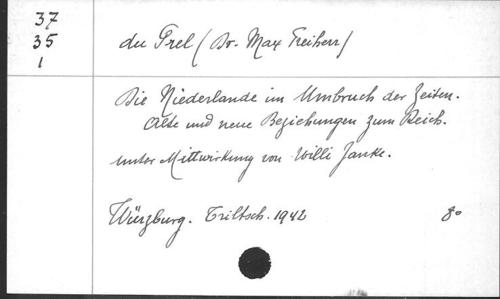 37
35
1
du Prel (Dr. Max Freiherr)
Die Niederlande im Umbruch der Zeiten.
Alte und neue Beziehungen zum Reich.
unter Mittwirkung von Willi Janke.
Würzburg. Triltsch. 1942 8°